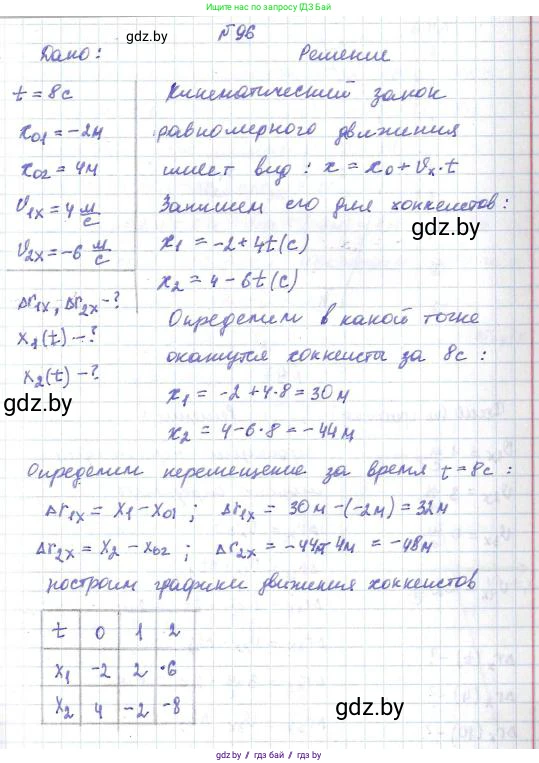 Ищите нас по запросу ГДЗ БАЙ
gdz.by
№ 96
Дано:
Решение
t = 8c
x01 = -2м
x02 = 4м
υ1x = 4 м/с
υ2x = -6 м/с
Δr1x, Δr2x -?
x1(t) -?
x2(t) -?
Кинематический закон
равномерного движения
имеет вид: x = x0 + υx · t
Запишем его для хоккеистов:
gdz.by
x1 = -2 + 4t (c)
x2 = 4 - 6t (c)
Определим в какой точке
окажутся хоккеисты за 8с:
gdz.by
x1 = -2 + 4·8 = 30м
x2 = 4 - 6·8 = -44м
Определим перемещение за время t = 8c:
Δr1x = x1 - x01; Δr1x = 30м - (-2м) = 32м
Δr2x = x2 - x02; Δr2x = -44м - 4м = -48м
построим графики движения хоккеистов
t 0 1 2
x1 -2 2 6
x2 4 -2 -8
gdz.by
gdz.by / гдз бай / gdz.by